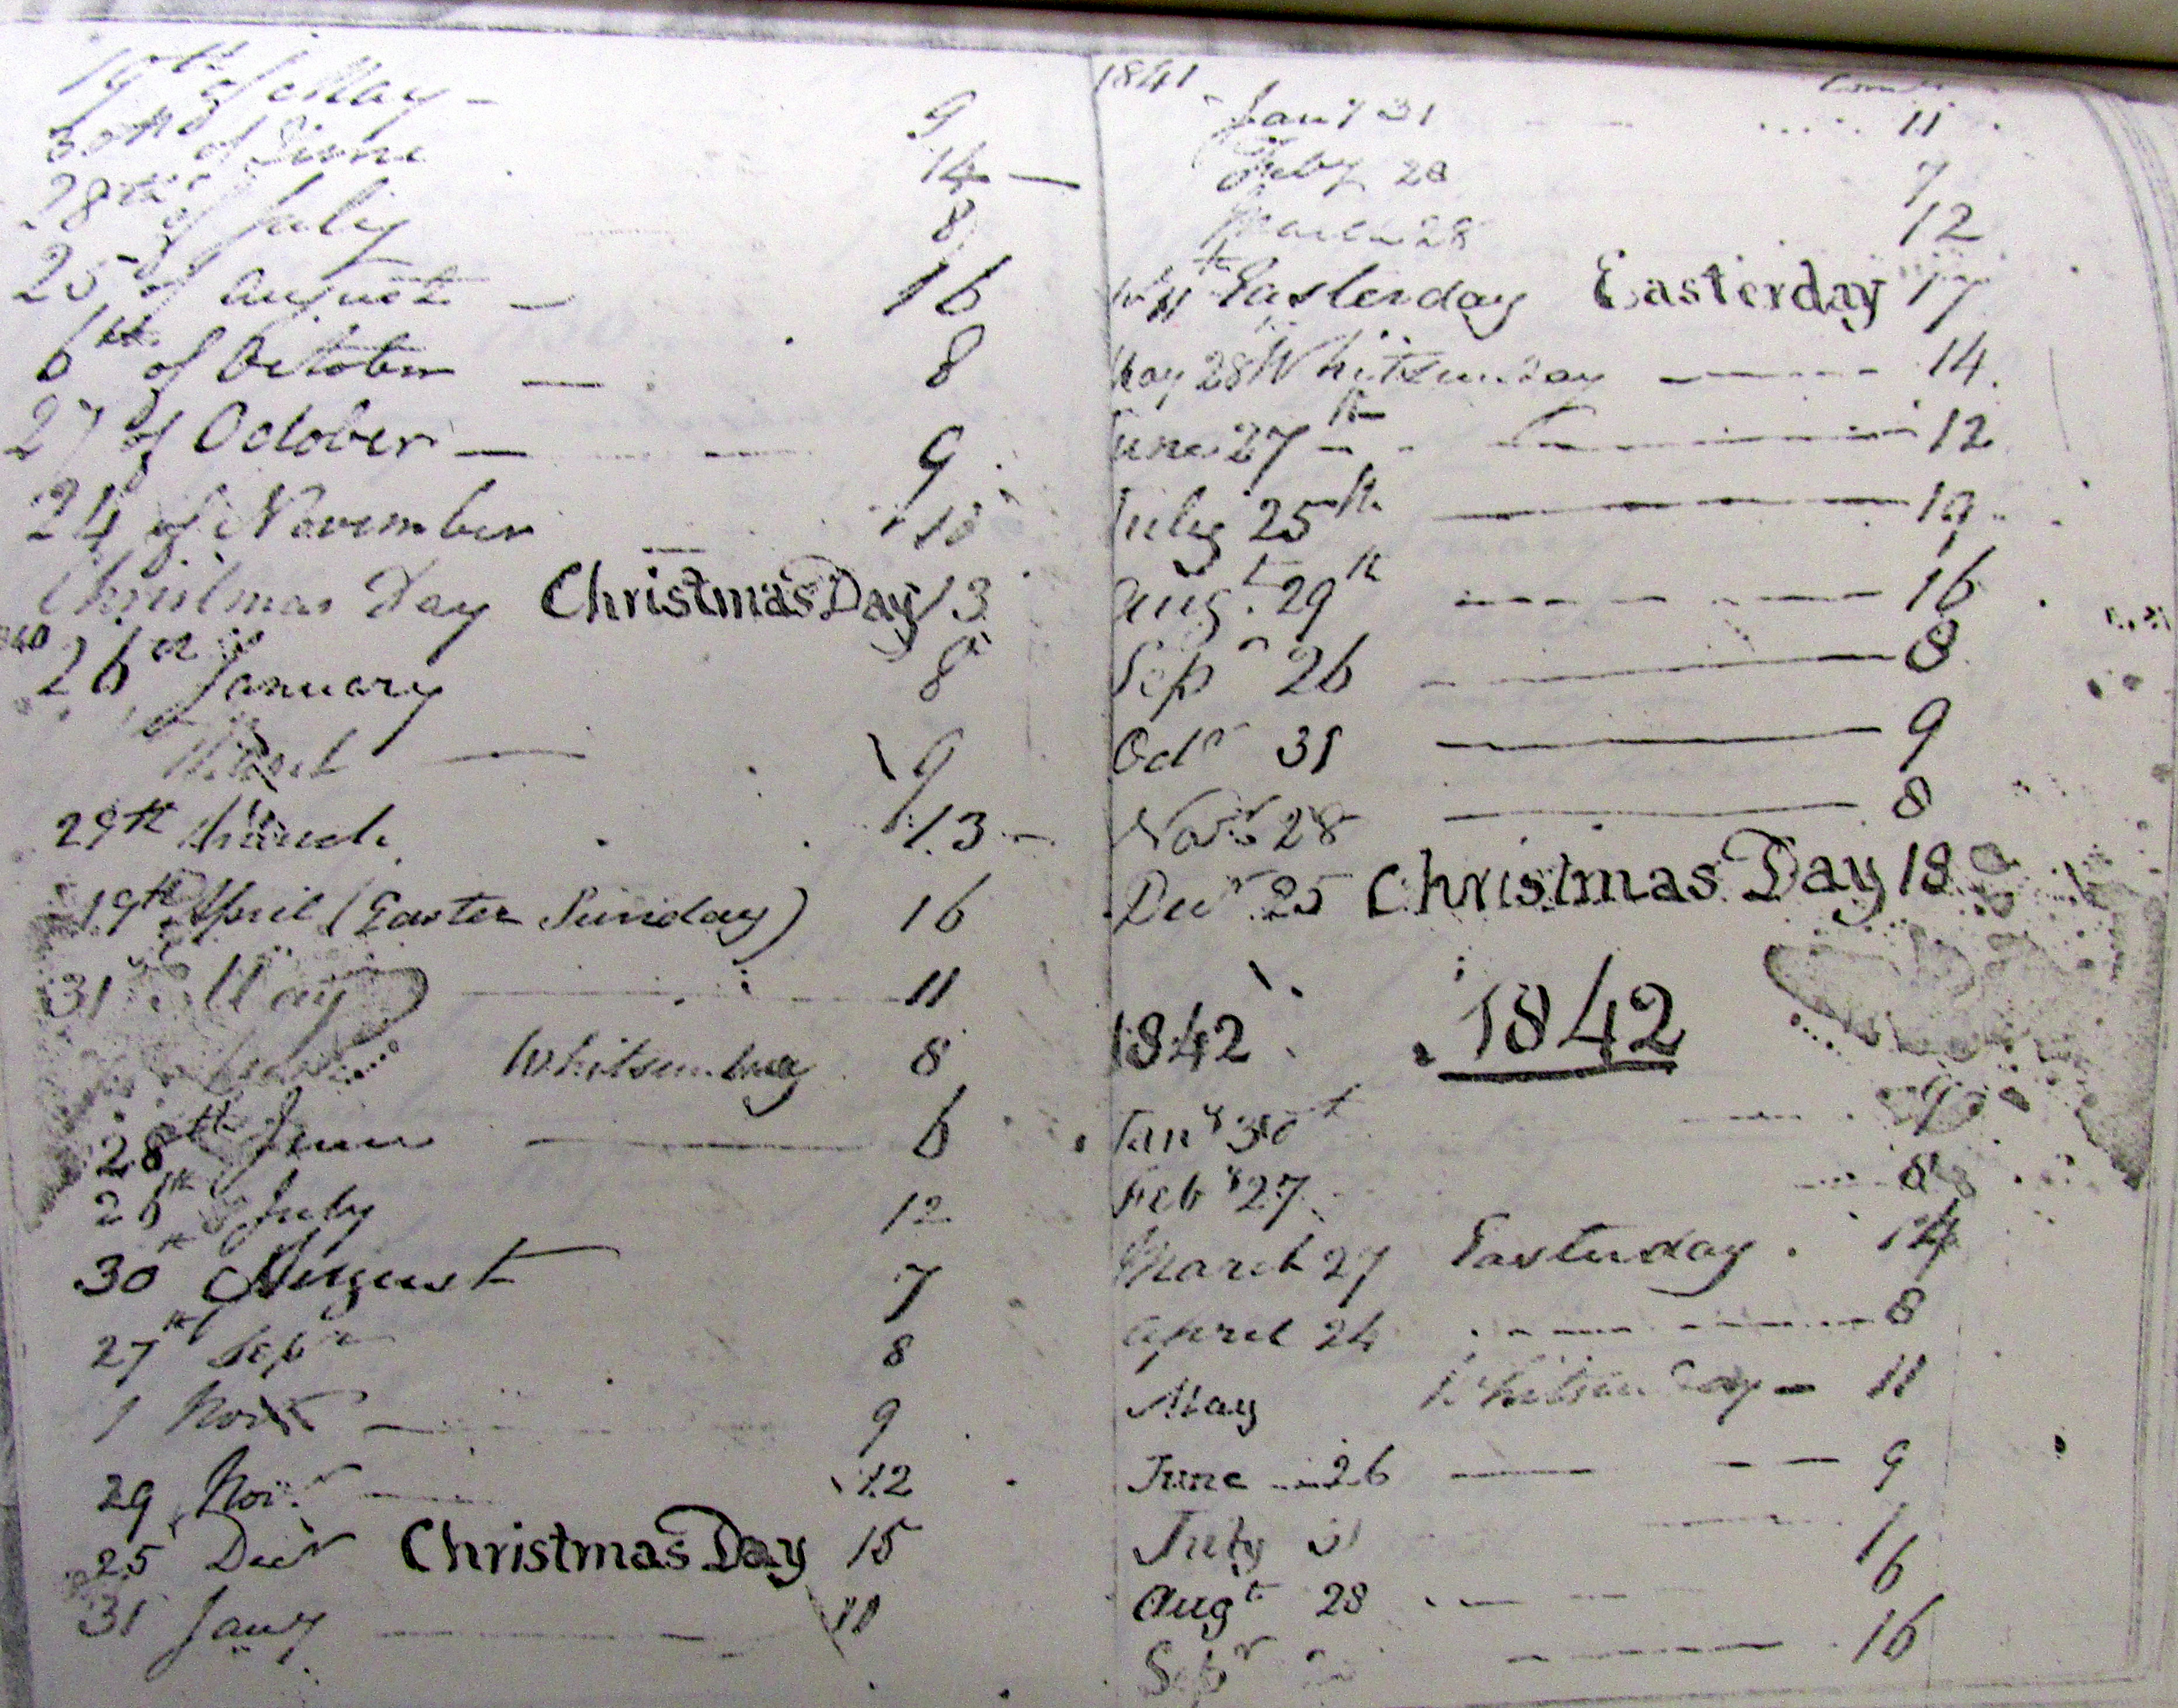 19th of May - 9
30th of June 14 —
28th of July 8
25 of August — 16
6th of October — 8
27 of October — 9
24 of November 10
Christmas Day Christmas Day 13
26th January 8
March — 9
29th March 13 -
19th April (Easter Sunday) 16
31 May 11
Whitsunday 8
28th June — 6
26th July 12
30th August 7
27th Sepr 8
1 Novr — 9
29 Novr — 12
25 Decr Christmas Day 15
31 Jany — 11
1841
Jany 31 11
Feby 28 7
March 28 12
Easterday Easterday 17
May 28 Whitsunday — 14
June 27th — 12
July 25th — 19
Augt 29th — 16
Sepr 26 — 8
Octr 31 — 9
Novr 28 — 8
Decr 25 Christmas Day 18
1842 1842
Jany 30 9
Feby 27 8
March 27 Easterday 14
April 24 — 8
May Whitsunday — 11
June 26 — 9
July 31
Augt 28 — 16
Sepr — 16